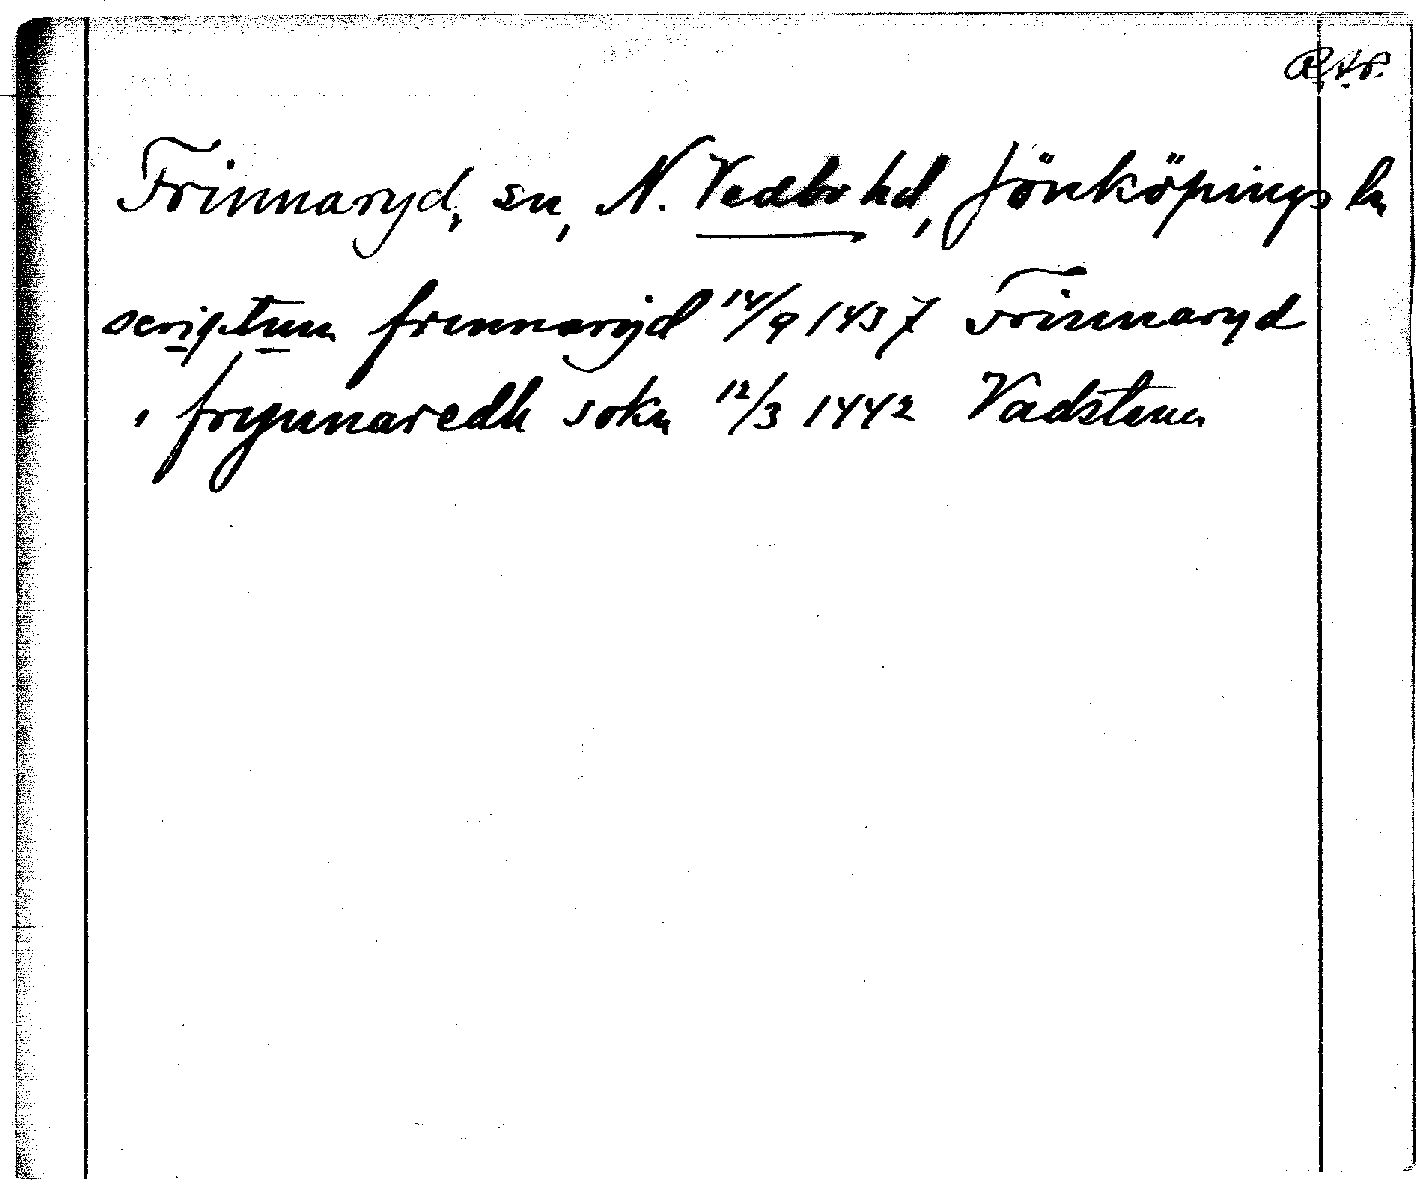 R.A.P.
Frinnaryd, sn, N. Vedbo hd, Jönköpings ln
scriptum frinnaryd 14/9 1437 Frinnaryd
i frynnaredh sokn 12/3 1442 Vadstena